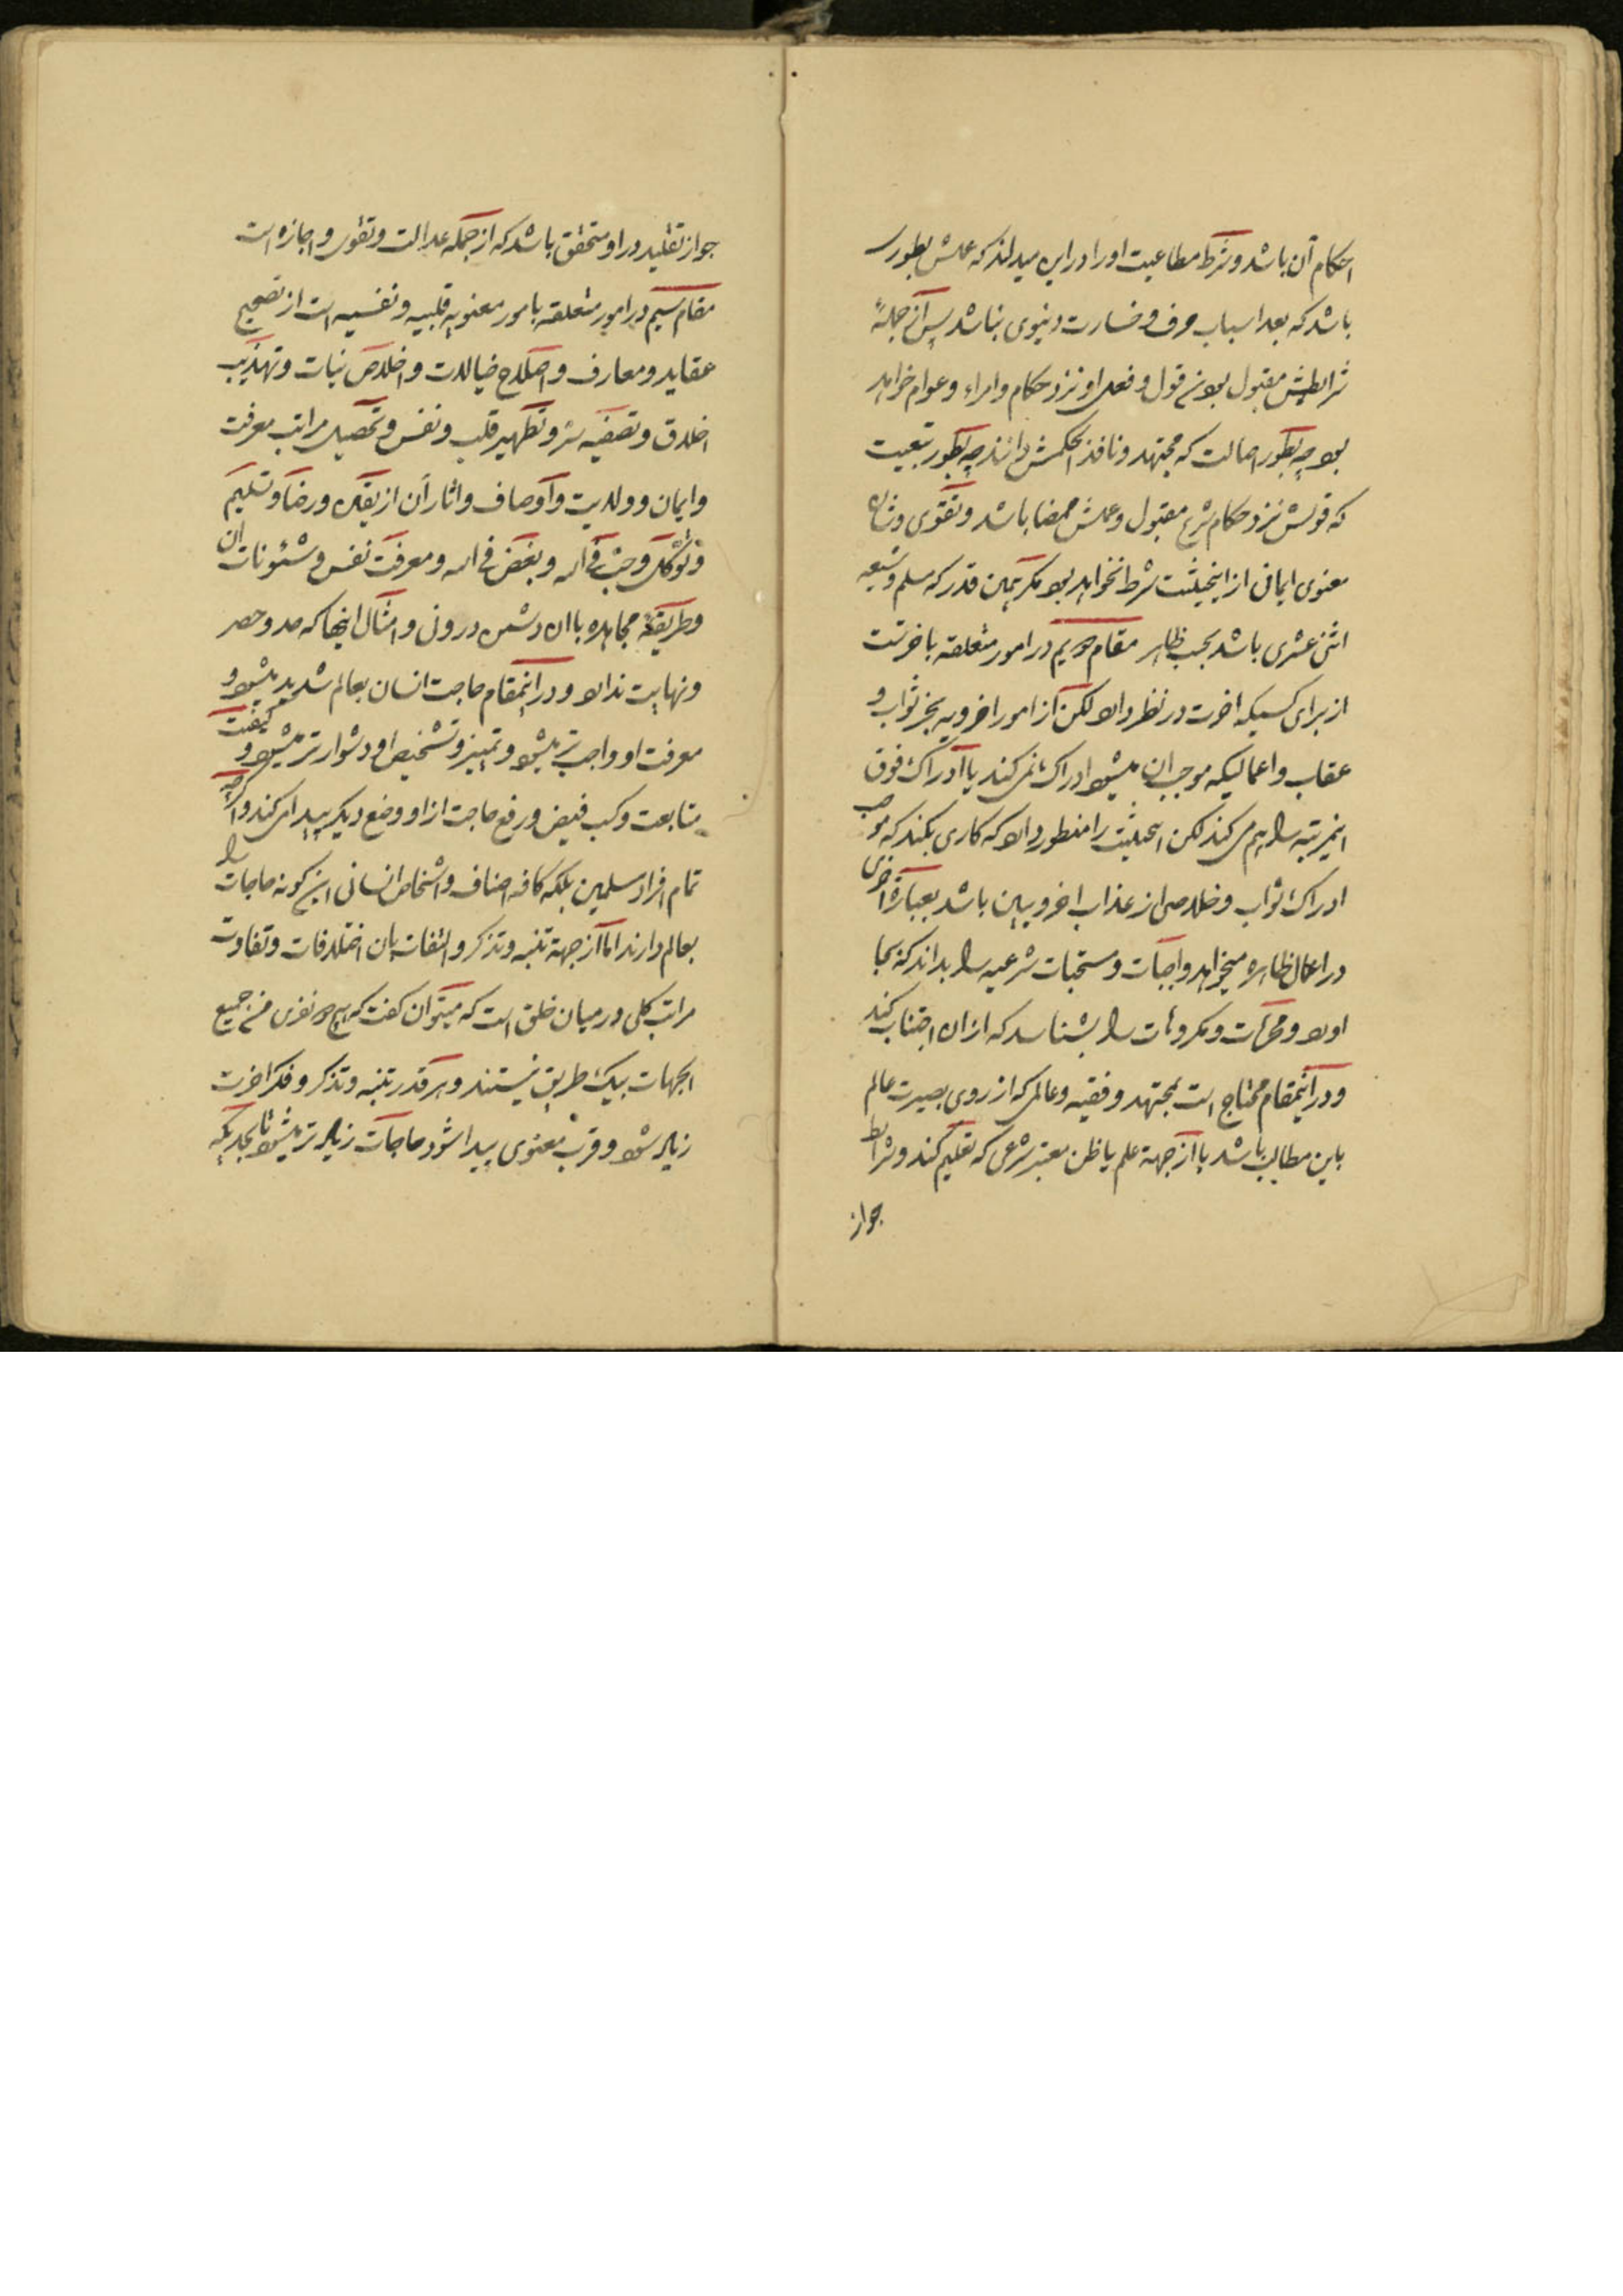 احکام آن باشد و شرط مطاعیت او را در این میداند که عملش بطوری
باشد که بعد اسباب حرف و خسارت دنیوی نباشد پس از جملهٔ
شرایطش مقبول بودن قول و فعل او نزد حکام و امراء و عوام خواهد
بود چه بطور اصالت که مجتهد و نافذ الحکمش دانند چه بطور تبعیت
که قولش نزد حکام شرع مقبول و عملش ممضا باشد و تقوی و
معنوی ایمانی از اینحیثیت شرط نخواهد بود مگر همین قدر که مسلم و شیعه
اثنی عشری باشد بحسب ظاهر مقام دویم در امور متعلقه باخرتست
از برای کسیکه اخرت در نظر دارد لکن از امور اخرویه بجز ثواب و
عقاب و اعمالیکه موجب ان میشود ادراک نمی کند یا ادراک فوق
اینمرتبه را هم می کند لکن اینحیثیت را منظور دارد که کاری بکند که موجب
ادراک ثواب و خلاصی از عذاب اخروی باشد بعبارة اخری
در اعمال ظاهره میخواهد واجبات و مستحبات شرعیه را بداند که بجا
اورد و محرمات و مکروهات را بشناسد که از ان اجتناب کند
و در اینمقام محتاج است بمجتهد و فقیه و عالمی که از روی بصیرت عالم
باین مطالب باشد یا از جهة علم یا ظن معتبر شرعی که تعلیم کند و شرایط
جواز
جواز تقلید در او متحقق باشد که از جمله عدالت و تقوی و اجازه است
مقام سیم در امور متعلقه بامور معنویه قلبیه و نفسیه است از تصحیح
عقاید و معارف و اصلاح خیالات و اخلاص نیات و تهذیب
اخلاق و تصفیه سر و تطهیر قلب و نفس و تحصیل مراتب معرفت
و ایمان و ولایت و اوصاف و اثار آن از یقین و رضا و تسلیم
و توکل و حب فی الله و بغض فی الله و معرفت نفس و شئونات ان
و طریقهٔ مجاهده با ان دشمن درونی و امثال اینها که حد و حصر
و نهایت ندارد و در اینمقام حاجت انسان بعالم شدید میشود و
معرفت او واجب تر میشود و تمییز و تشخیص او دشوارتر میشود و کیفیت
متابعت و کسب فیض و رفع حاجت از او وضع دیگر پیدا می کند و اگرچه
تمام افراد مسلمین بلکه کافه اصناف و اشخاص انسانی این گونه حاجات را
بعالم دارند اما از جهة تنبه و تذکر و التفات بان اختلافات و تفاوت
مراتب کلی در میان خلق است که میتوان گفت که هیچ دو نفری من جمیع
الجهات بیک طریق نیستند و هر قدر تنبه و تذکر و فکر اخرت
زیاد شود و قرب معنوی پیدا شود حاجات زیاد تر میشود تا بحدیکه